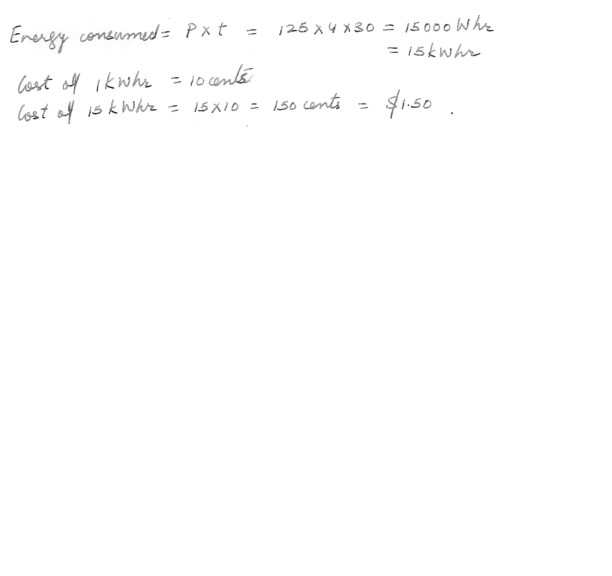 Energy consumed = P x t = 125 x 4 x 30 = 15000 Whr
= 15 kWhr
Cost of 1 kWhr = 10 cents
Cost of 15 kWhr = 15 x 10 = 150 cents = $1.50 .